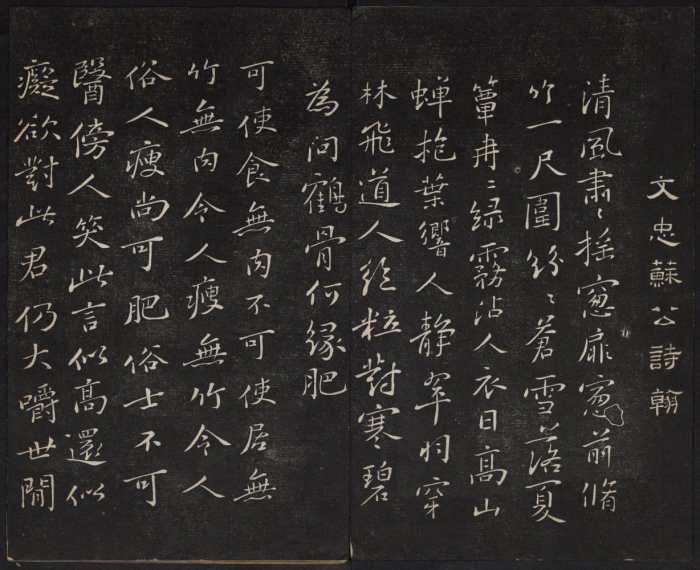 文忠蘇公詩翰
清風肅〻揺窓扉窓前脩
竹一尺圍紛〻蒼雪落夏
簟冉〻緑霧沾人衣日高山
蟬抱葉響人静翠羽穿
林飛道人絶粒對寒碧
為問鶴骨何緣肥
可使食無肉不可使居無
竹無肉令人瘦無竹令人
俗人瘦尚可肥俗士不可
醫傍人笑此言似高還似
癡欲對此君仍大嚼世間